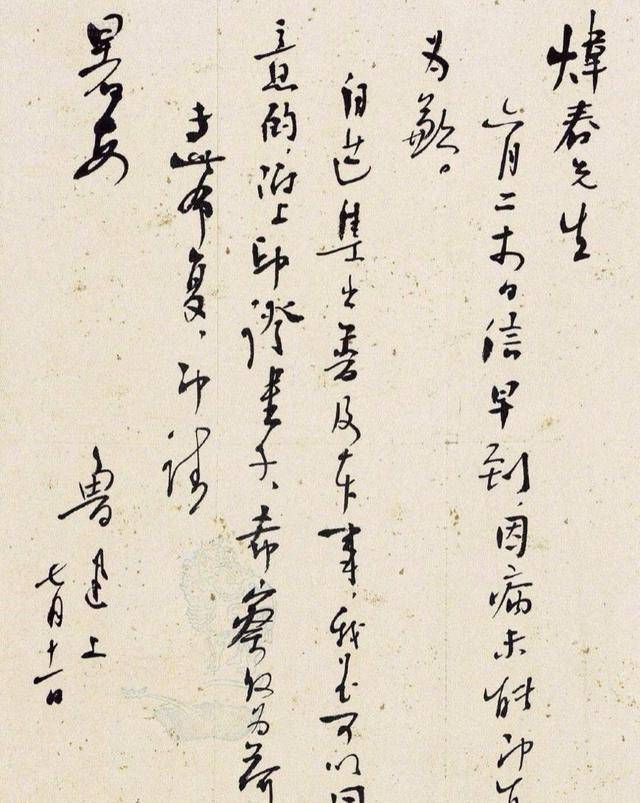 煒春先生
六月二日信早到，因病未能即
为歉。
自选集出普及本事，我是可以同
意的，附上印證壹千，希察收为荷
专此布复，即請
暑安
魯迅上
七月十一日